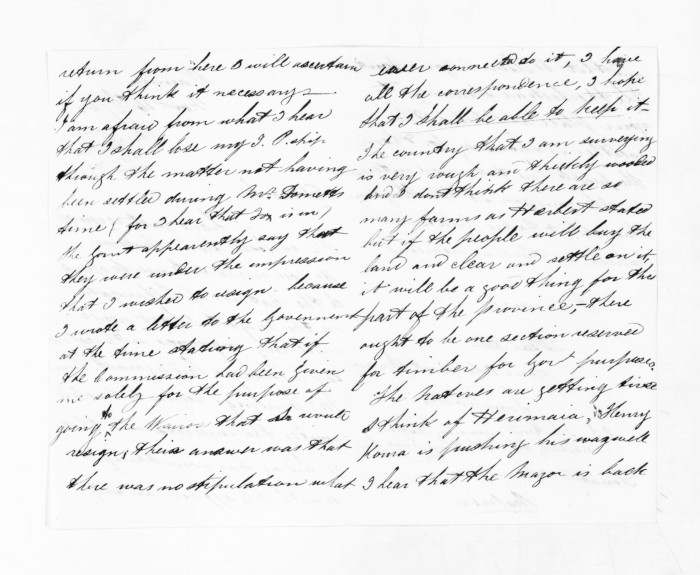 return from here I will ascertain
if you think it necessary
I am afraid from what I hear
that I shall lose my J. P. ship
through the matter not having
been settled during Mr. Dometts
time (for I hear that Fox is in)
the Govt apperently say that
they were under the impression
that I wished to resign because
I wrote a letter to the Government
at the time stating that if
the Commission had been given
me solely for the purpose of
going to the that I would
resign, their answer was that
there was no stipulation what
ever connected to it, I have
all the correspondence, I hope
that I shall be able to keep it
The country that I am surveying
is very rough and thickly wooded
and I dont think there are so
many farms as Herbert stated
but if the people will buy the
land and clear and settle on it,
it will be a good thing for the
part of the province, – there
ought to be one section reserved
for timber for Govt purposes
The Natives are getting tired
I think of Herimara, Henry
is pushing his
I hear that the Mazor is back